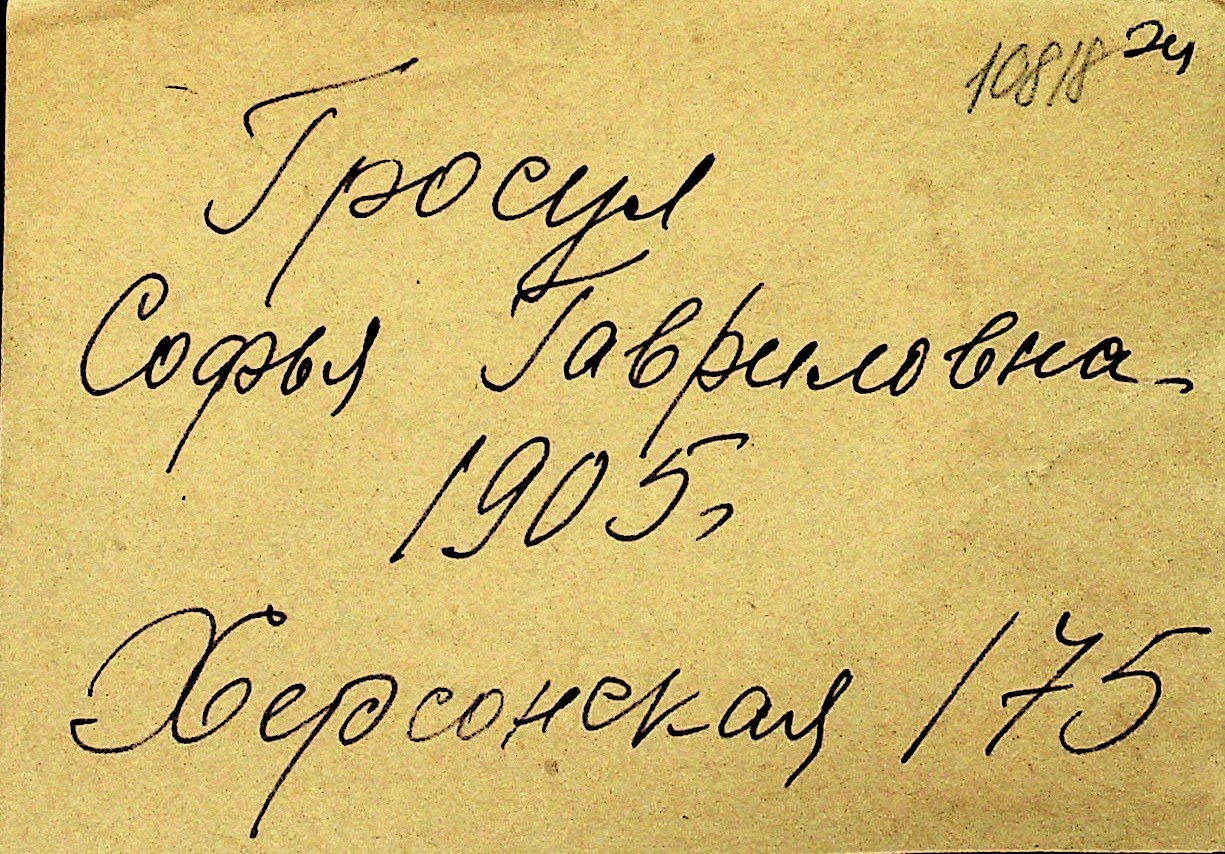 10818
Гросул
Софья Гавриловна
1905г
Херсонская 175